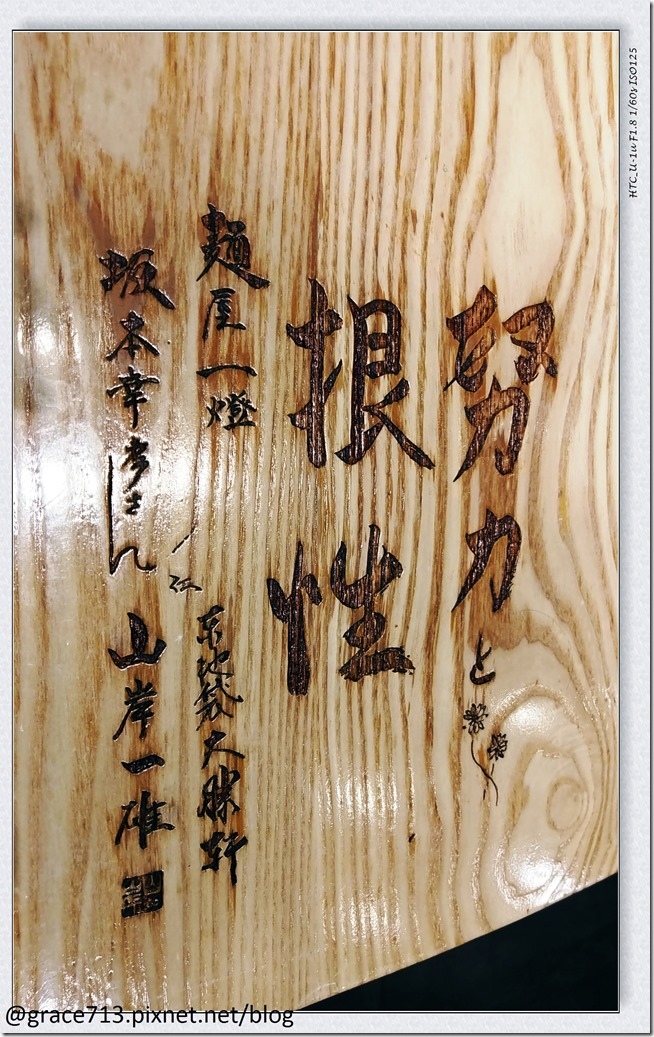 努力と
根性
麺屋一燈
坂本幸彦さん
江
東池袋大勝軒
山岸一雄
HTC_U-1u F1.8 1/60s ISO125
@grace713.pixnet.net/blog